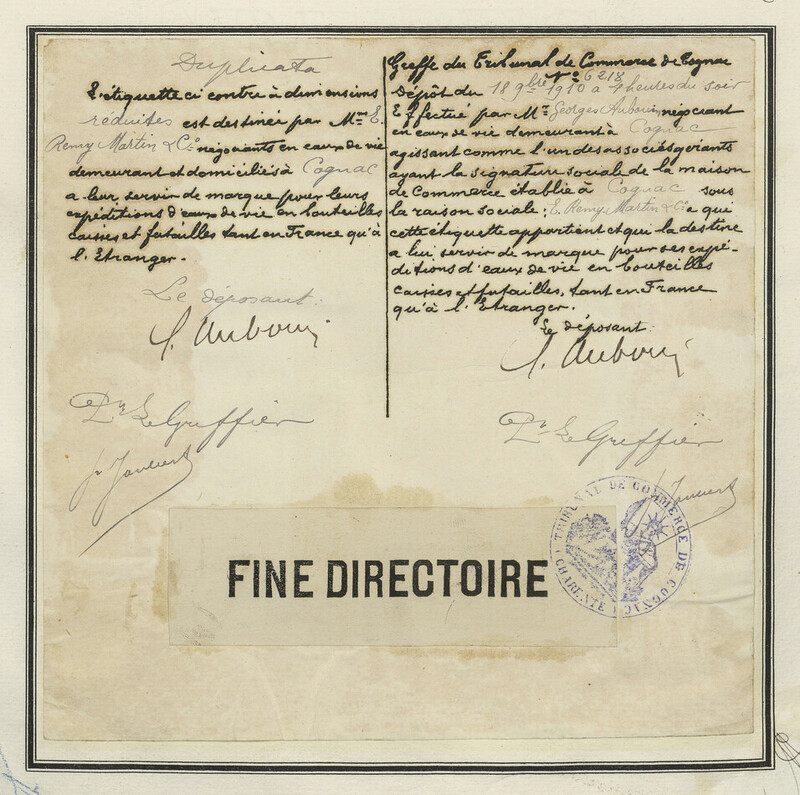 Duplicata
L'étiquette ci contre à dimensions
réduites est destinée par Mrs E.
Remy Martin & Cie négociants en eaux de vie
demeurant et domiciliés à Cognac
a leur servir de marque pour leurs
expéditions d'eaux de vie en bouteilles
caisses et futailles tant en France qu'à
l'Etranger.-
Le déposant:
G. Aubouin
Pr Le Greffier
Greffe du Tribunal de Commerce de Cognac
No 6218
Dépôt du 18 9bre 1910 à 4 heures du soir
Effectué par Mr Georges Aubouin, négociant
en eaux de vie demeurant à Cognac
agissant comme l'un des associés gérants
ayant la signature sociale de la maison
de Commerce établie à Cognac sous
la raison sociale: E. Remy Martin & Cie a qui
cette étiquette appartient et qui la destine
a lui servir de marque pour ses expé-
ditions d'eaux de vie en bouteilles
caisses et futailles, tant en France
qu'à l'Etranger.
Le déposant:
G. Aubouin
Pr Le Greffier
TRIBUNAL DE COMMERCE DE COGNAC
CHARENTE
FINE DIRECTOIRE